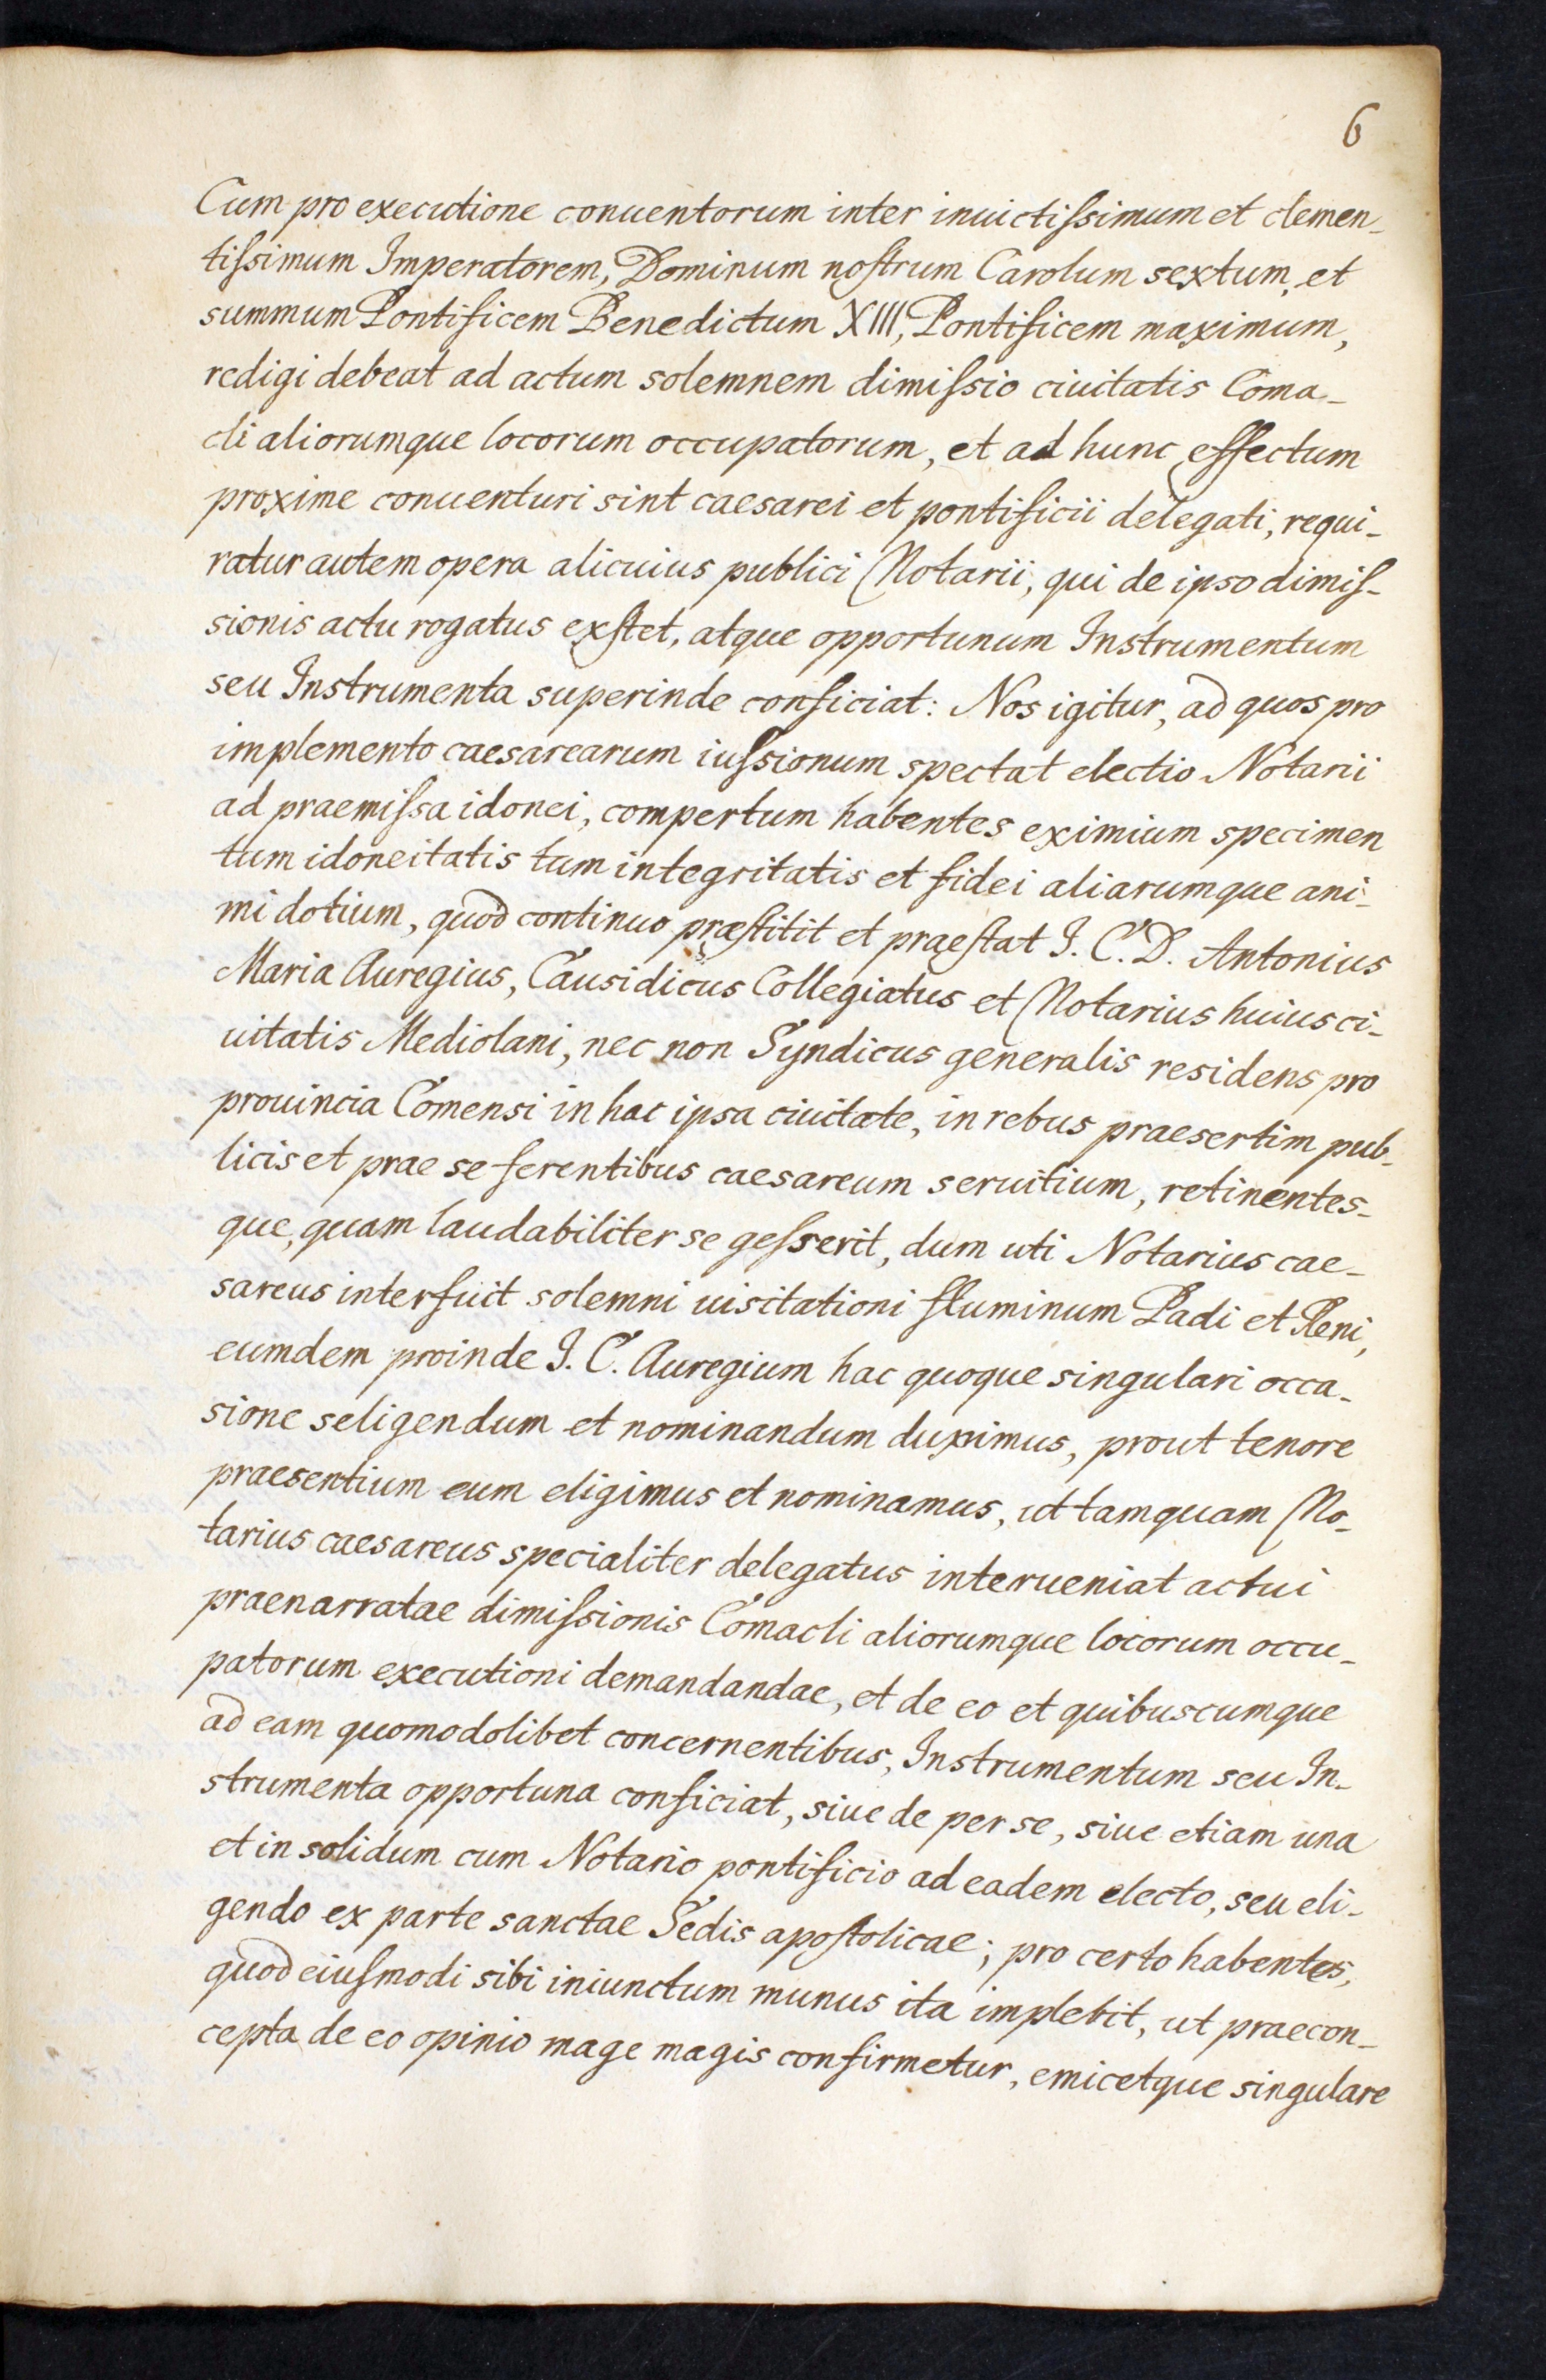 6
Cum pro executione conuentorum inter inuictiſsimum et clemen_
tiſsimum Imperatorem, Dominum noſtrum Carolum sextum, et
summum Pontificem Benedictum XIII, Pontificem maximum,
redigi debeat ad actum solemnem dimiſsio ciuitatis Coma_
cli aliorumque locorum occupatorum, et ad hunc effectum
proxime conuenturi sint caesarei et pontificii delegati, requi_
ratur autem opera alicuius publici Notarii, qui de ipso dimiſ_
sionis actu rogatus exſtet, atque opportunum Instrumentum
seu Instrumenta superinde conficiat: Nos igitur, ad quos pro
implemento caesarearum iuſsionum spectat electio Notarii
ad praemiſsa idonei, compertum habentes eximium specimen
tum idoneitatis tum integritatis et fidei aliarumque ani_
mi dotium, quod continuo præſtitit et praeſtat I. C. D. Antonius
Maria Auregius, Causidicus Collegiatus et Notarius huius ci_
uitatis Mediolani, nec non Syndicus generalis residens pro
prouincia Comensi in hac ipsa ciuitate, in rebus praesertim pub_
licis et prae se ferentibus caesareum seruitium, retinentes_
que, quam laudabiliter se geſserit, dum uti Notarius cae_
sareus interfuit solemni uisitationi fluminum Padi et Reni,
eumdem proinde I. C. Auregium hac quoque singulari occa_
sione seligendum et nominandum duximus, prout tenore
praesentium eum eligimus et nominamus, ut tamquam No_
tarius caesareus specialiter delegatus interueniat actui
praenarratae dimiſsionis Comacli aliorumque locorum occu_
patorum executioni demandandae, et de eo et quibuscumque
ad eam quomodolibet concernentibus, Instrumentum seu In_
strumenta opportuna conficiat, siue de per se, siue etiam una
et in solidum cum Notario pontificio ad eadem electo, seu eli_
gendo ex parte sanctae Sedis apoſtolicae; pro certo habentes,
quod eiuſmodi sibi iniunctum munus ita implebit, ut praecon_
cepta de eo opinio mage magis confirmetur, emicetque singulare